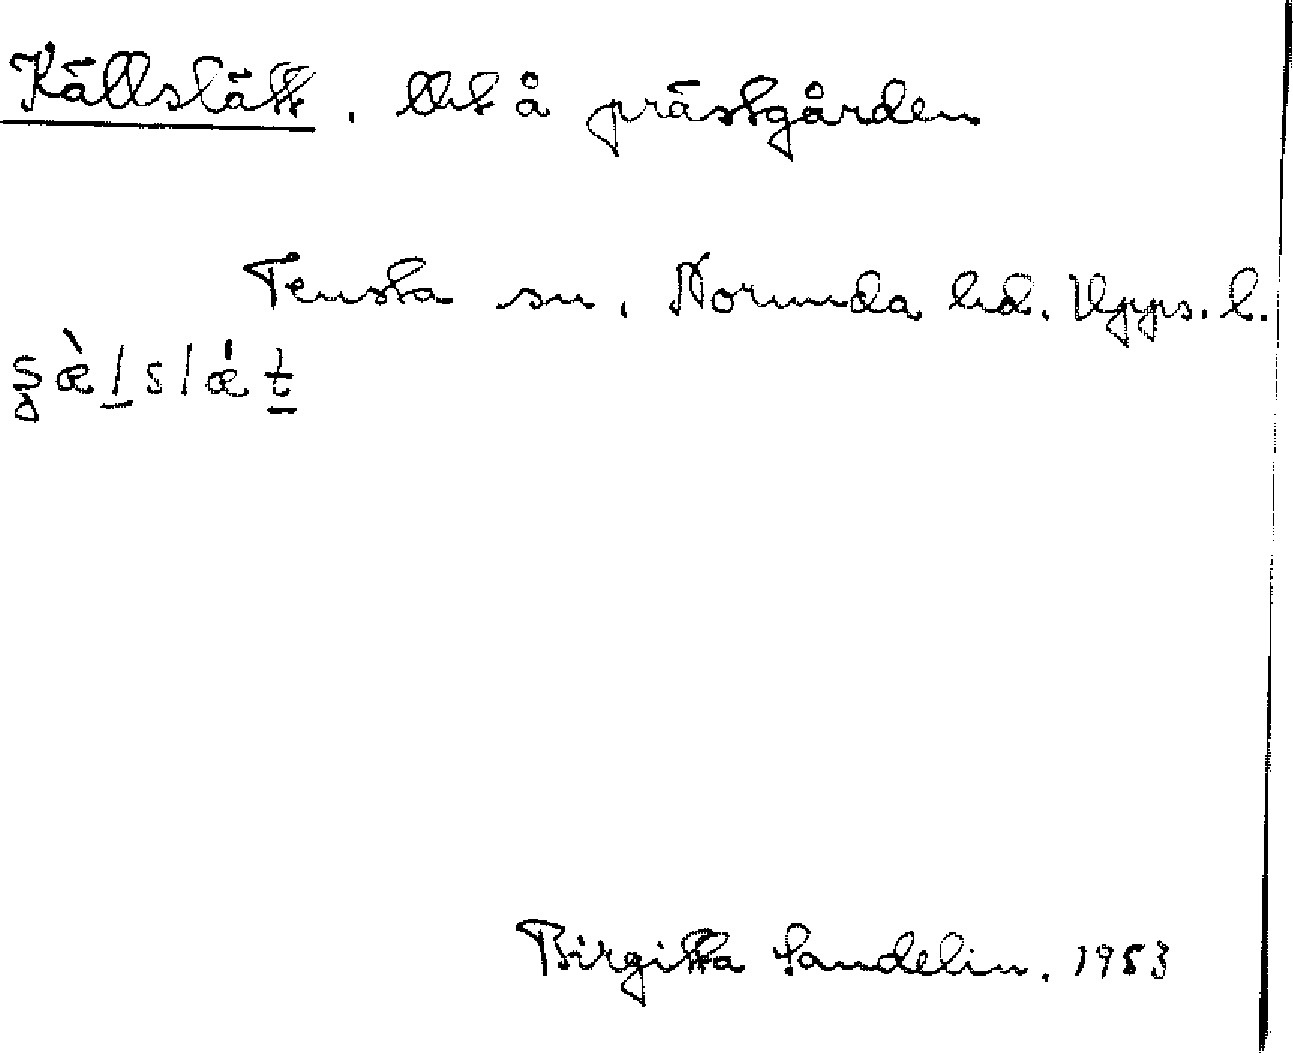 Källslätt. Akt å prästgården
Tensta sn. Norunda hd. Upps. l.
Birgitta Sandelin. 1953